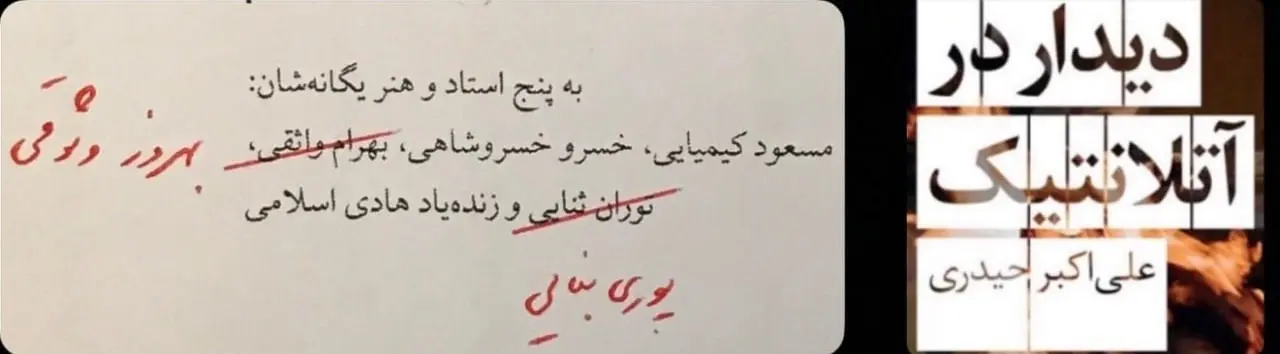 به پنج استاد و هنر یگانه‌شان:
مسعود کیمیایی، خسرو خسروشاهی، بهرام واثقی،
بهروز وثوقی
توران ثنایی و زنده‌یاد هادی اسلامی
پوری بنایی
دیدار در
آتلانتیک
علی‌اکبر حیدری